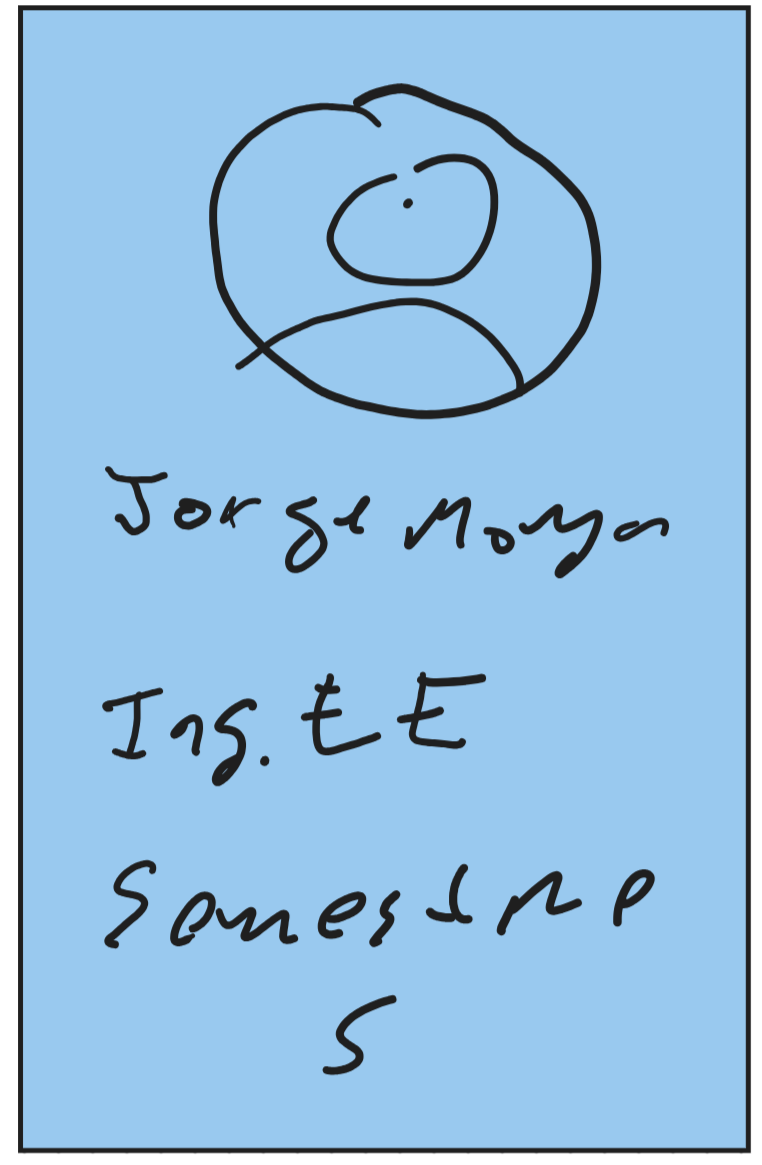 Jorge Moya
Ing. EE
Semestre
5